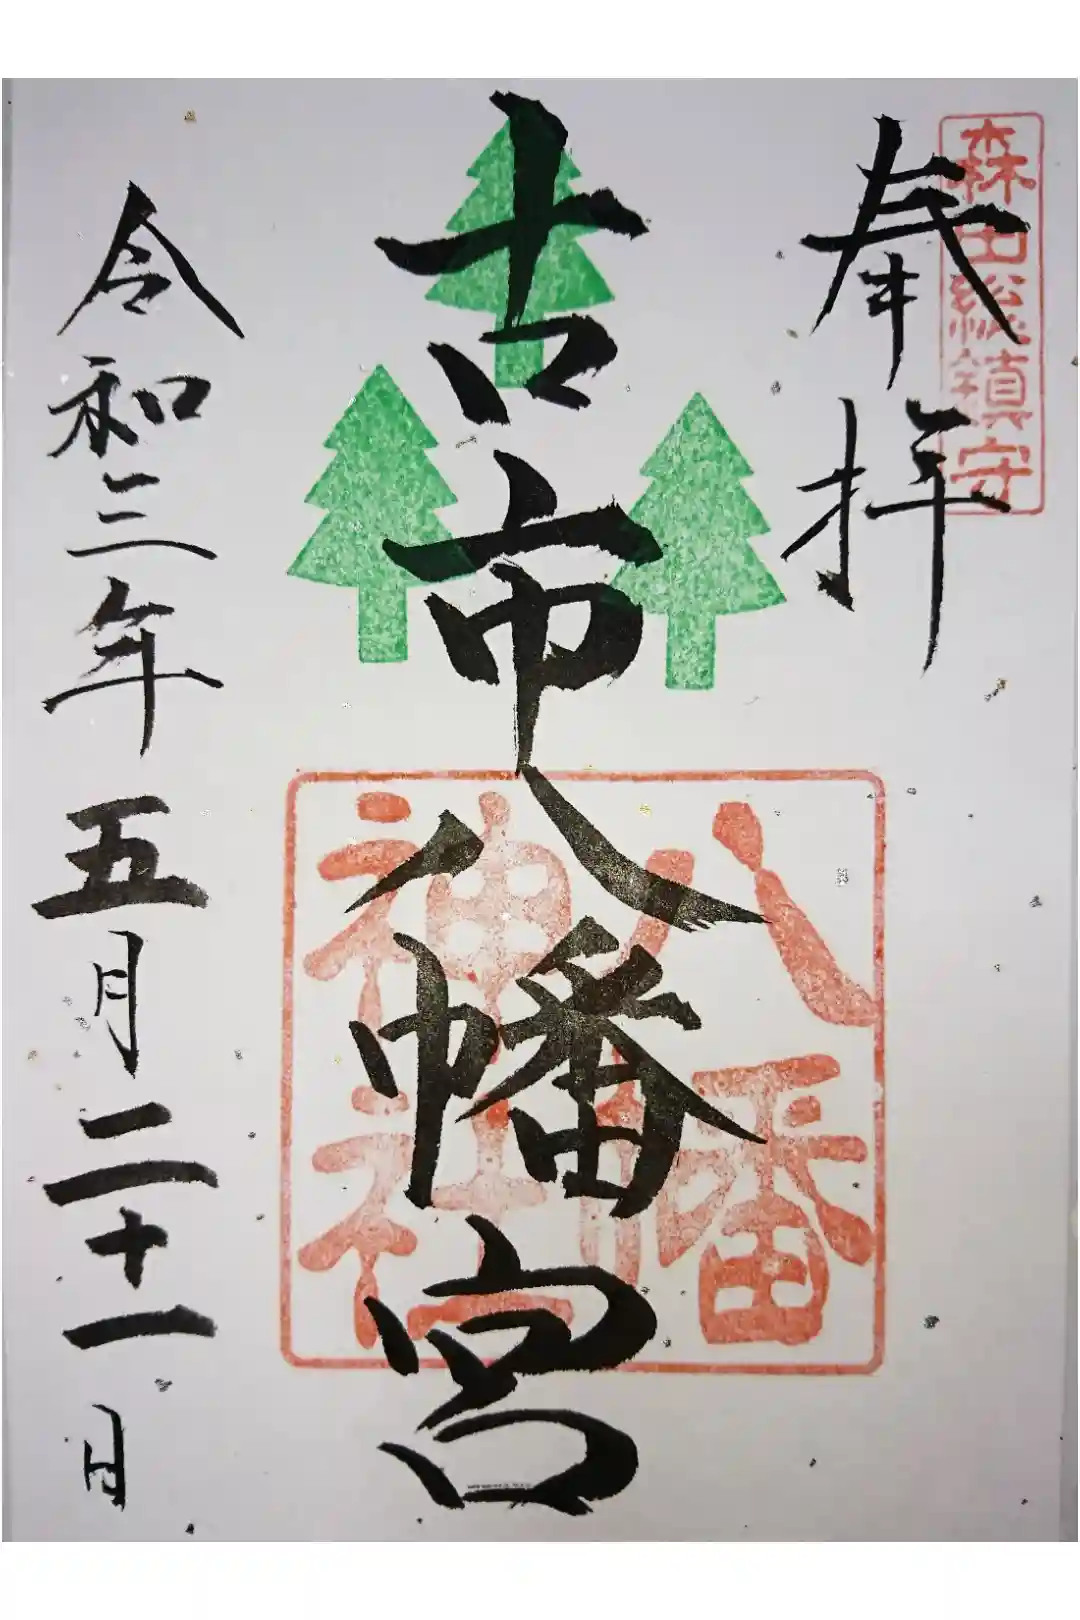 森田総鎮守
奉拝
吉市八幡宮
八幡
神社
令和三年五月二十一日